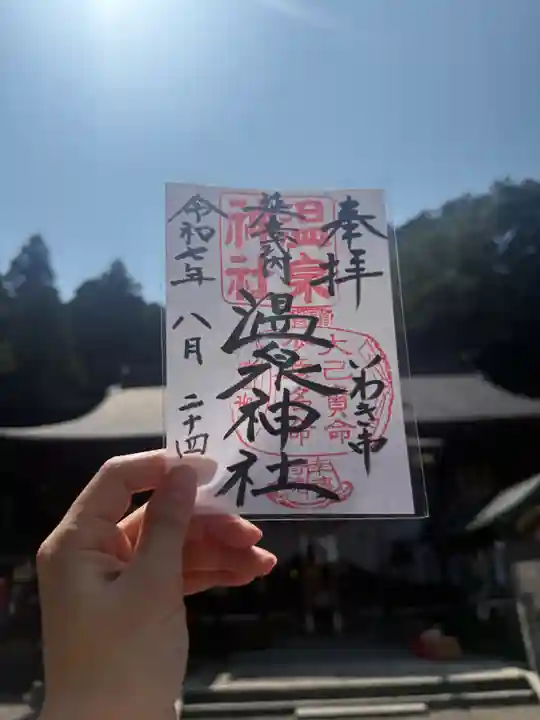 奉拝
いわき市
延喜式内
温泉神社
令和七年
八月
二十四
温泉
神社
大己貴命
少彦名命